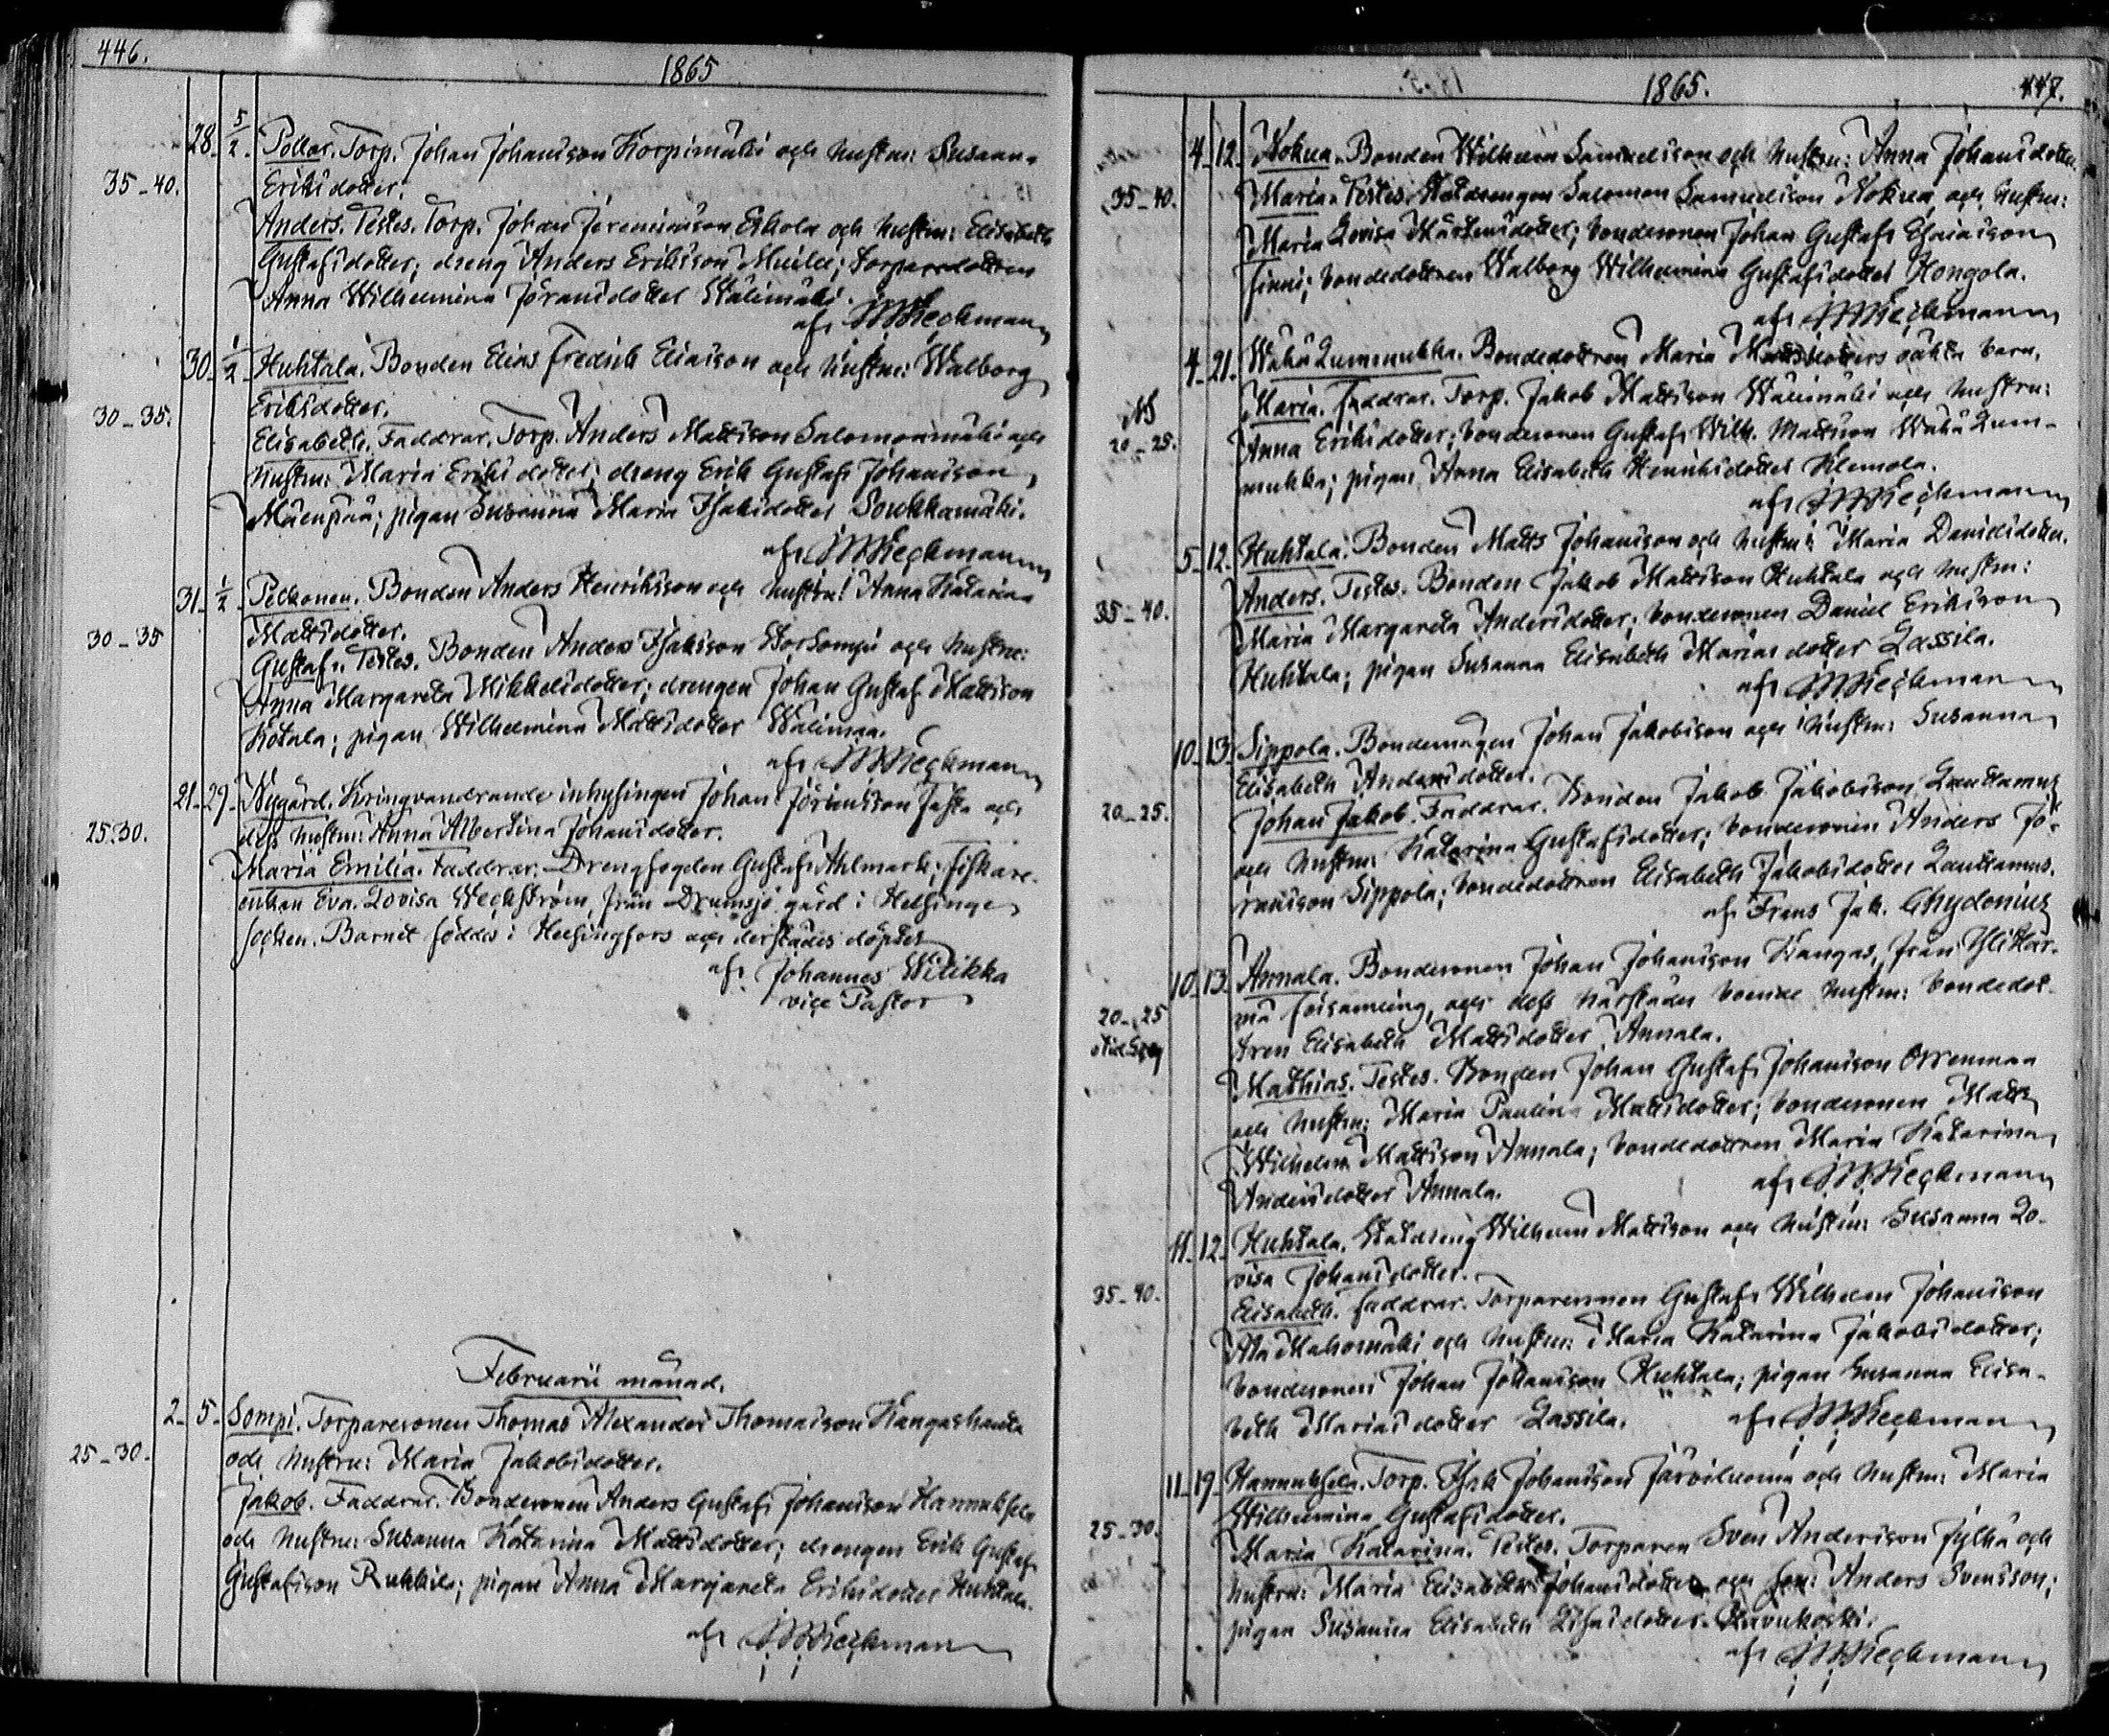 446.
1865
28. 5/2. Pollar. Torp. Johan Johansson Korpimäki och hustru: Susanna
35-40. Eriksdotter.
Anders. Testes. Torp. Johan Jeremiasson Eskola och hustru: Elisabeth
Gustafsdotter; dreng Anders Eriksson; torparedottren
Anna Wilhelmina Jöransdotter Wälimäki.
af
30. 1/2 Huhtala. Bonden Elias Fredrik Eliasson och hustru: Walborg
30-35. Eriksdotter.
Elisabeth. Faddrar. Torp. Anders Mattsson Salomonmäki och
hustru: Maria Eriksdotter; dreng Erik Gustaf Johansson
Mäenpää; pigan Susanna Maria Isaksdotter Soukkamäki.
af
31. 1/2 Pelkonen. Bonden Anders Henriksson och hustru: Anna Katarina
30-35 Mattsdotter.
Gustaf. Testes. Bonden Anders Isaksson och hustru:
Anna Margareta Mikkelsdotter; drengen Johan Gustaf Mattsson
Kotala; pigan Wilhelmina Mattsdotter Wälimaa.
af
21-29. Nygård. Kringvandrande inhysingen Johan Göransson och
25-30. dess hustru: Anna Albertina Johansdotter.
Maria Emilia. Faddrar. Drengfogden Gustaf Ahlmark; fiskare-
enkan Eva Lovisa Weckström, från Drumsjö gård i Helsinge
socken. Barnet föddes i Helsingfors och derstädes döptes
af Johannes Wilikka
vice Pastor
Februarii månad.
2-5- Sompi. Torparesonen Thomas Alexander Thomasson Kangashauta
25-30. och hustru: Maria Jakobsdotter.
Jakob. Faddrar. Bondesonen Anders Gustaf Johansson Hannuksela
och hustru: Susanna Katarina Mattsdotter; drengen Erik Gustaf
Gustafsson Rukkila; pigan Anna Margareta Eriksdotter Huhtala.
af
1865.
447.
4-12. Kokua. Bonden Wilhelm Samuelsson och hustru: Anna Johansdotter.
35-40. Maria. Testes. Statdrengen Salomon Samuelsson och hustru:
Maria Lovisa Mårtensdotter; bondesonen Johan Gustaf Esaiasson
Finni; bondedottren Walborg Wilhelmina Gustafsdotter Hongola.
af
4-21. Wähä Lummukka. Bondedottren Maria Mattsdotters oäkta barn,
Maria. Faddrar. Torp. Jakob Mattsson Wälimäki och hustru:
20-25. Anna Eriksdotter; bondesonen Gustaf Wilh. Mattsson Wähä Lum-
mukka; pigan Anna Elisabeth Henriksdotter Klemola.
af
5-12. Huhtala. Bonden Matts Johansson och hustru: Maria Danielsdotter.
Anders. Testes. Bonden Jakob Mattsson Huhtala och hustru:
35-40. Maria Margareta Andersdotter; bondesonen Daniel Eriksson
Huhtala; pigan Susanna Elisabeth Mariasdotter Lassila.
af
10-13. Sippola. Bondemågen Johan Jakobsson och hustru: Susanna
Elisabeth Andersdotter.
20-25. Johan Jakob. Faddrar. Bonden Jakob Jakobsson Lauttamus
och hustru: Katarina Gustafsdotter; bondesonen Anders Jö-
ransson Sippola; bondedottren Elisabeth Jakobsdotter Lauttamus.
af Frans Jak. Chydenius
10-13. Annala. Bondesonen Johan Johansson Kangas, från Ylihär-
mä församling, och dess härstädes boende hustru: bondedot-
20-25 tren Elisabeth Mattsdotter Annala.
Mathias. Testes. Bonden Johan Gustaf Johansson Orrenmaa
och hustru: Maria Paulina Mattsdotter; bondesonen Matts
Wilhelm Mattsson Annala; bondedottren Maria Katarina
Andersdotter Annala. af
11-12. Huhtala. Statdreng Wilhelm Mattsson och hustru: Susanna Lo-
visa Johansdotter.
35-40. Elisabeth. Faddrar. Torparesonen Gustaf Wilhelm Johansson
Ala Mahomäki och hustru: Maria Katarina Jakobsdotter;
bondesonen Johan Johansson Huhtala; pigan Susanna Elisa-
beth Mariasdotter Lassila. af
11-19. Hannuksela. Torp. Isak Johansson Järviluoma och hustru: Maria
Wilhelmina Gustafsdotter.
25-30. Maria Katarina. Testes. Torparen Sven Andersson Jylhä och
hustru: Maria Elisabeth Johansdotter och son: Anders Svensson;
pigan Susanna Elisabeth
af